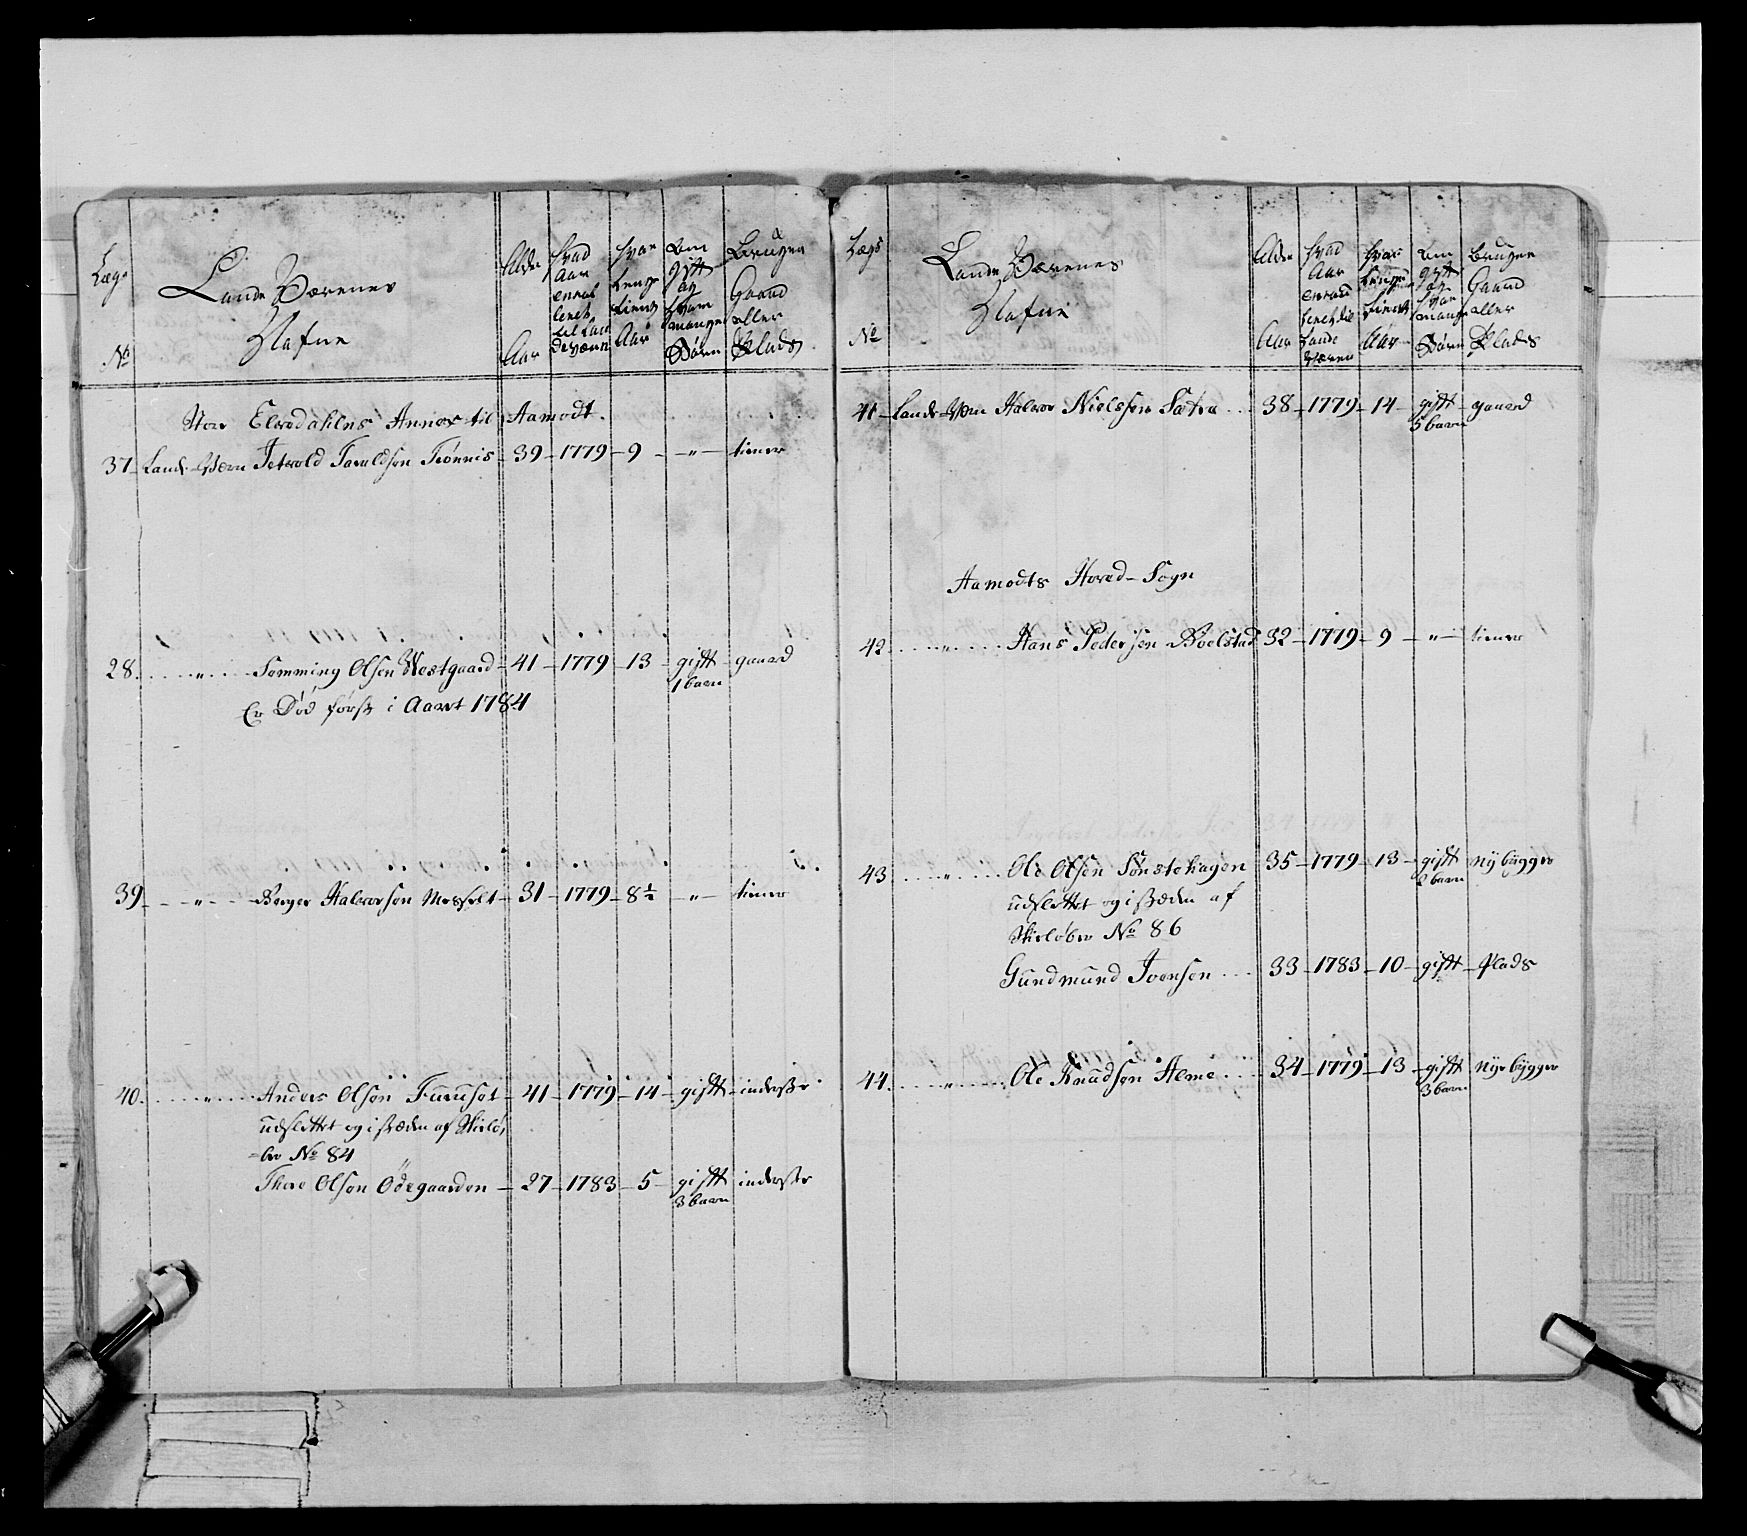 Lægs
No
Lande Værenes
Nafne
Alder
Aar
hvad
Aar
enrol
leret
til Land
deværn
hvor
lenge
tient
Aar
Om
gift
og
hvor
mange
Børn
Bruger
Gaard
eller
Plads
Stor Elvedahlens Annex til Aamodt.
37 Land-Wærn Tarald Taraldsen Trønnis 39 1779 9 " tiener
28. " Semming Olsen Westgaard 41 1779 13 gift gaard
1 barn
Er Død først i Aaret 1784
39 " Berger Halvorsen Messelt 31 1779 8½ " tiener
40. " Anders Olsen Furuset 41 1779 14 gift inderst
udslettet og i stæden af Skielø,
=ber No 84
Thore Olsen Ødegaarden 27 1783 5 gift inderste
3 barn
Lægs
No
Lande Værenes
Nafne
Alder
Aar
hvad
Aar
enroul
leret til
Lande
Væren
hvor
lenge
tient
Aar
Om
gift
og
hvor
mange
Børn
Bruger
Gaard
eller
Plads
41 Lande-Wærn Halvor Nielsen Sætra 38 1779 14 gift gaard
5 barn
Aamodts Hoved-Sogn
42 " Hans Pedersen Bolstad 32 1779 9 " tiener
43 " Ole Olsen Sønstehagen 35 1779 13 gift nybygger
2 barn
udslettet og i stæden af
Skieløber No 86
Gundmund Joensen 33 1783 10 gift Plads
44. " Ole Knudsen Alme 34 1779 13 gift nye bygger
3 barn